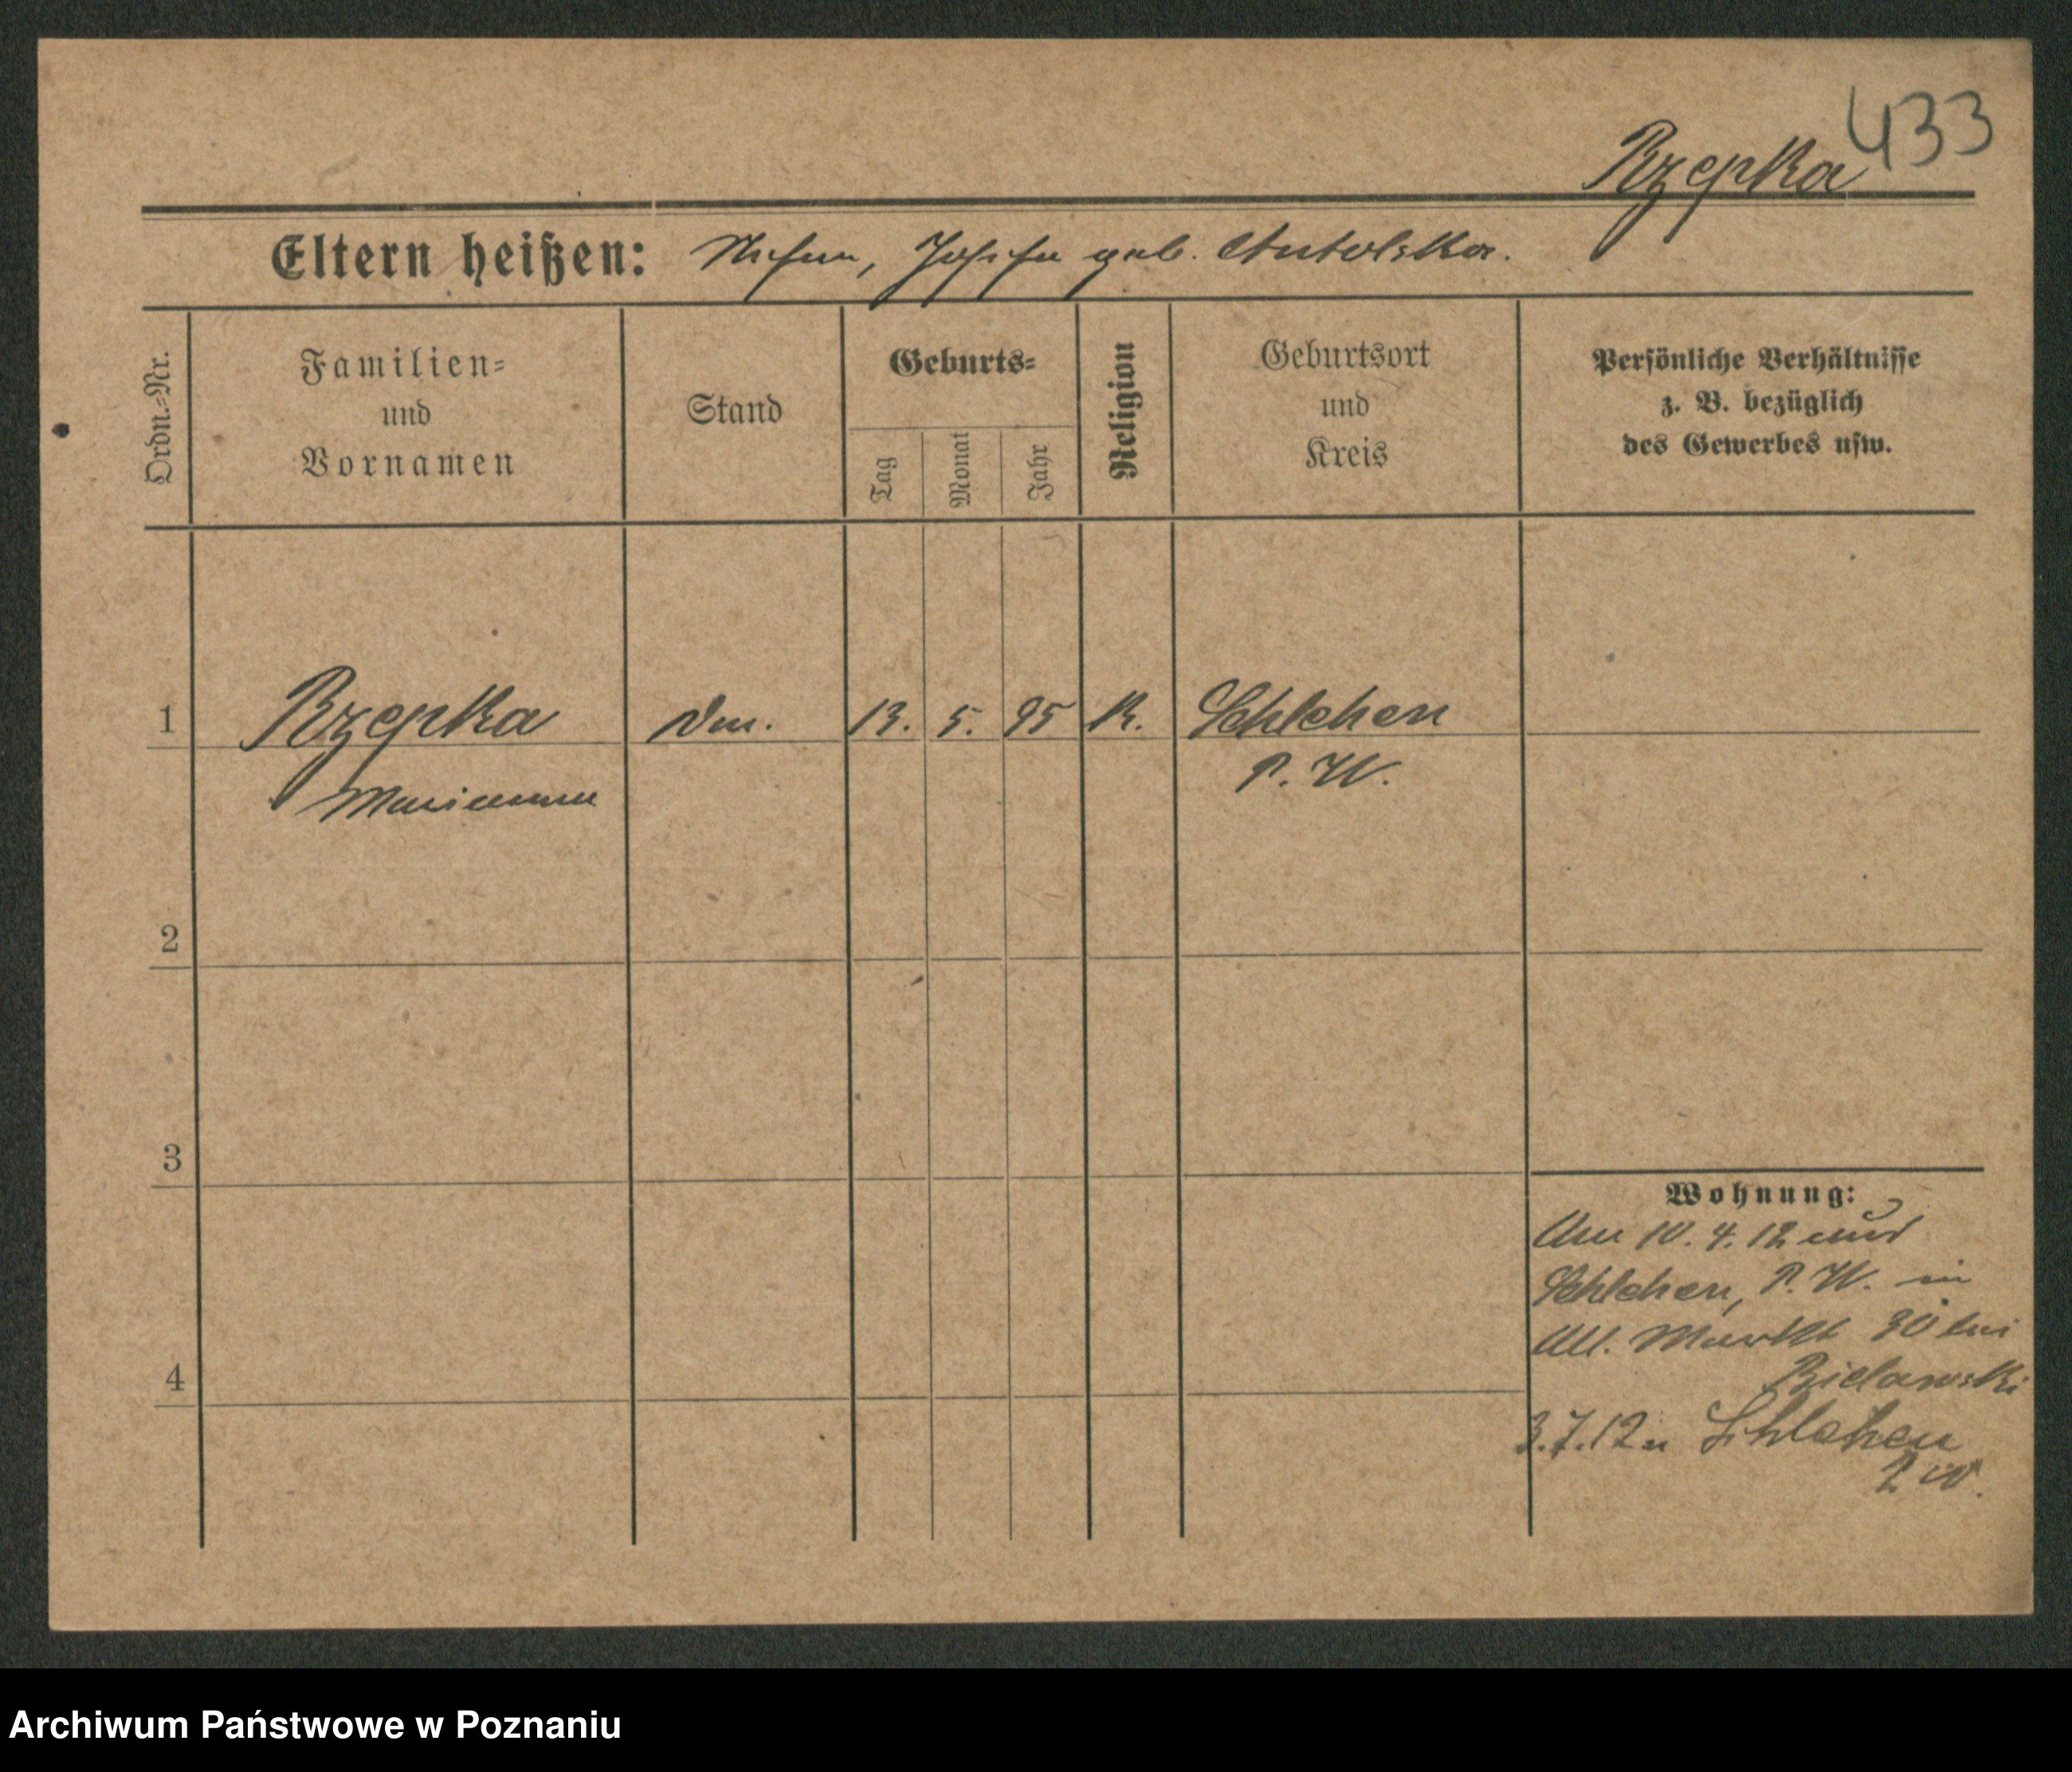 433
Rzepka
Eltern heißen: Stefan, Josefa geb. Antolska.
Ordn.=Nr.
Familien=
und
Vornamen
Stand
Geburts=
Tag
Monat
Jahr
Religion
Geburtsort
und
Kreis
Persönliche Verhältnisse
z. B. bezüglich
des Gewerbes usw.
1 Rzepka 13. 5. 95 K. Schlehen
Marianna P. W.
2
3
4
Wohnung:
Am 10. 4. 12 aus
Schlehen, P. W. in
Alt. Markt bei
Bielawski
3.7.12 n Schlehen
P W.
Archiwum Państwowe w Poznaniu